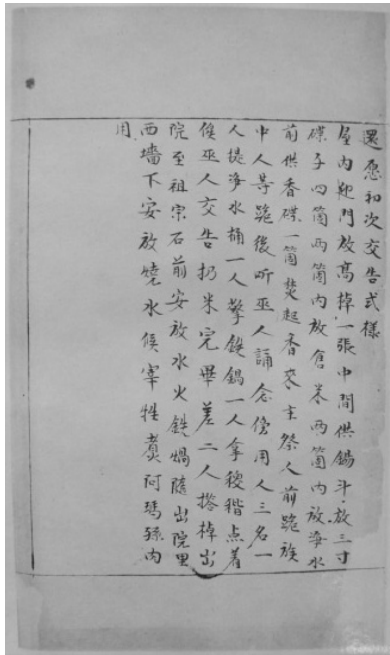 還愿初次交告式樣
屋内迎門放高掉一張中間供錫斗放三寸
碟子四箇两箇内放倉米两箇内放海水
前供香碟一箇焚起香來主祭人前跪族
中人等跪後听巫人誦念傍用人三名一
人提海水桶一人擎鉄鍋一人拿稷稭点着
俟巫人交告扔米完畢差二人搭掉出
院至祖宗石前安放水火鉄鍋隨出院里
西墻下安放燒水俟宰牲煮阿瑪孫肉
用